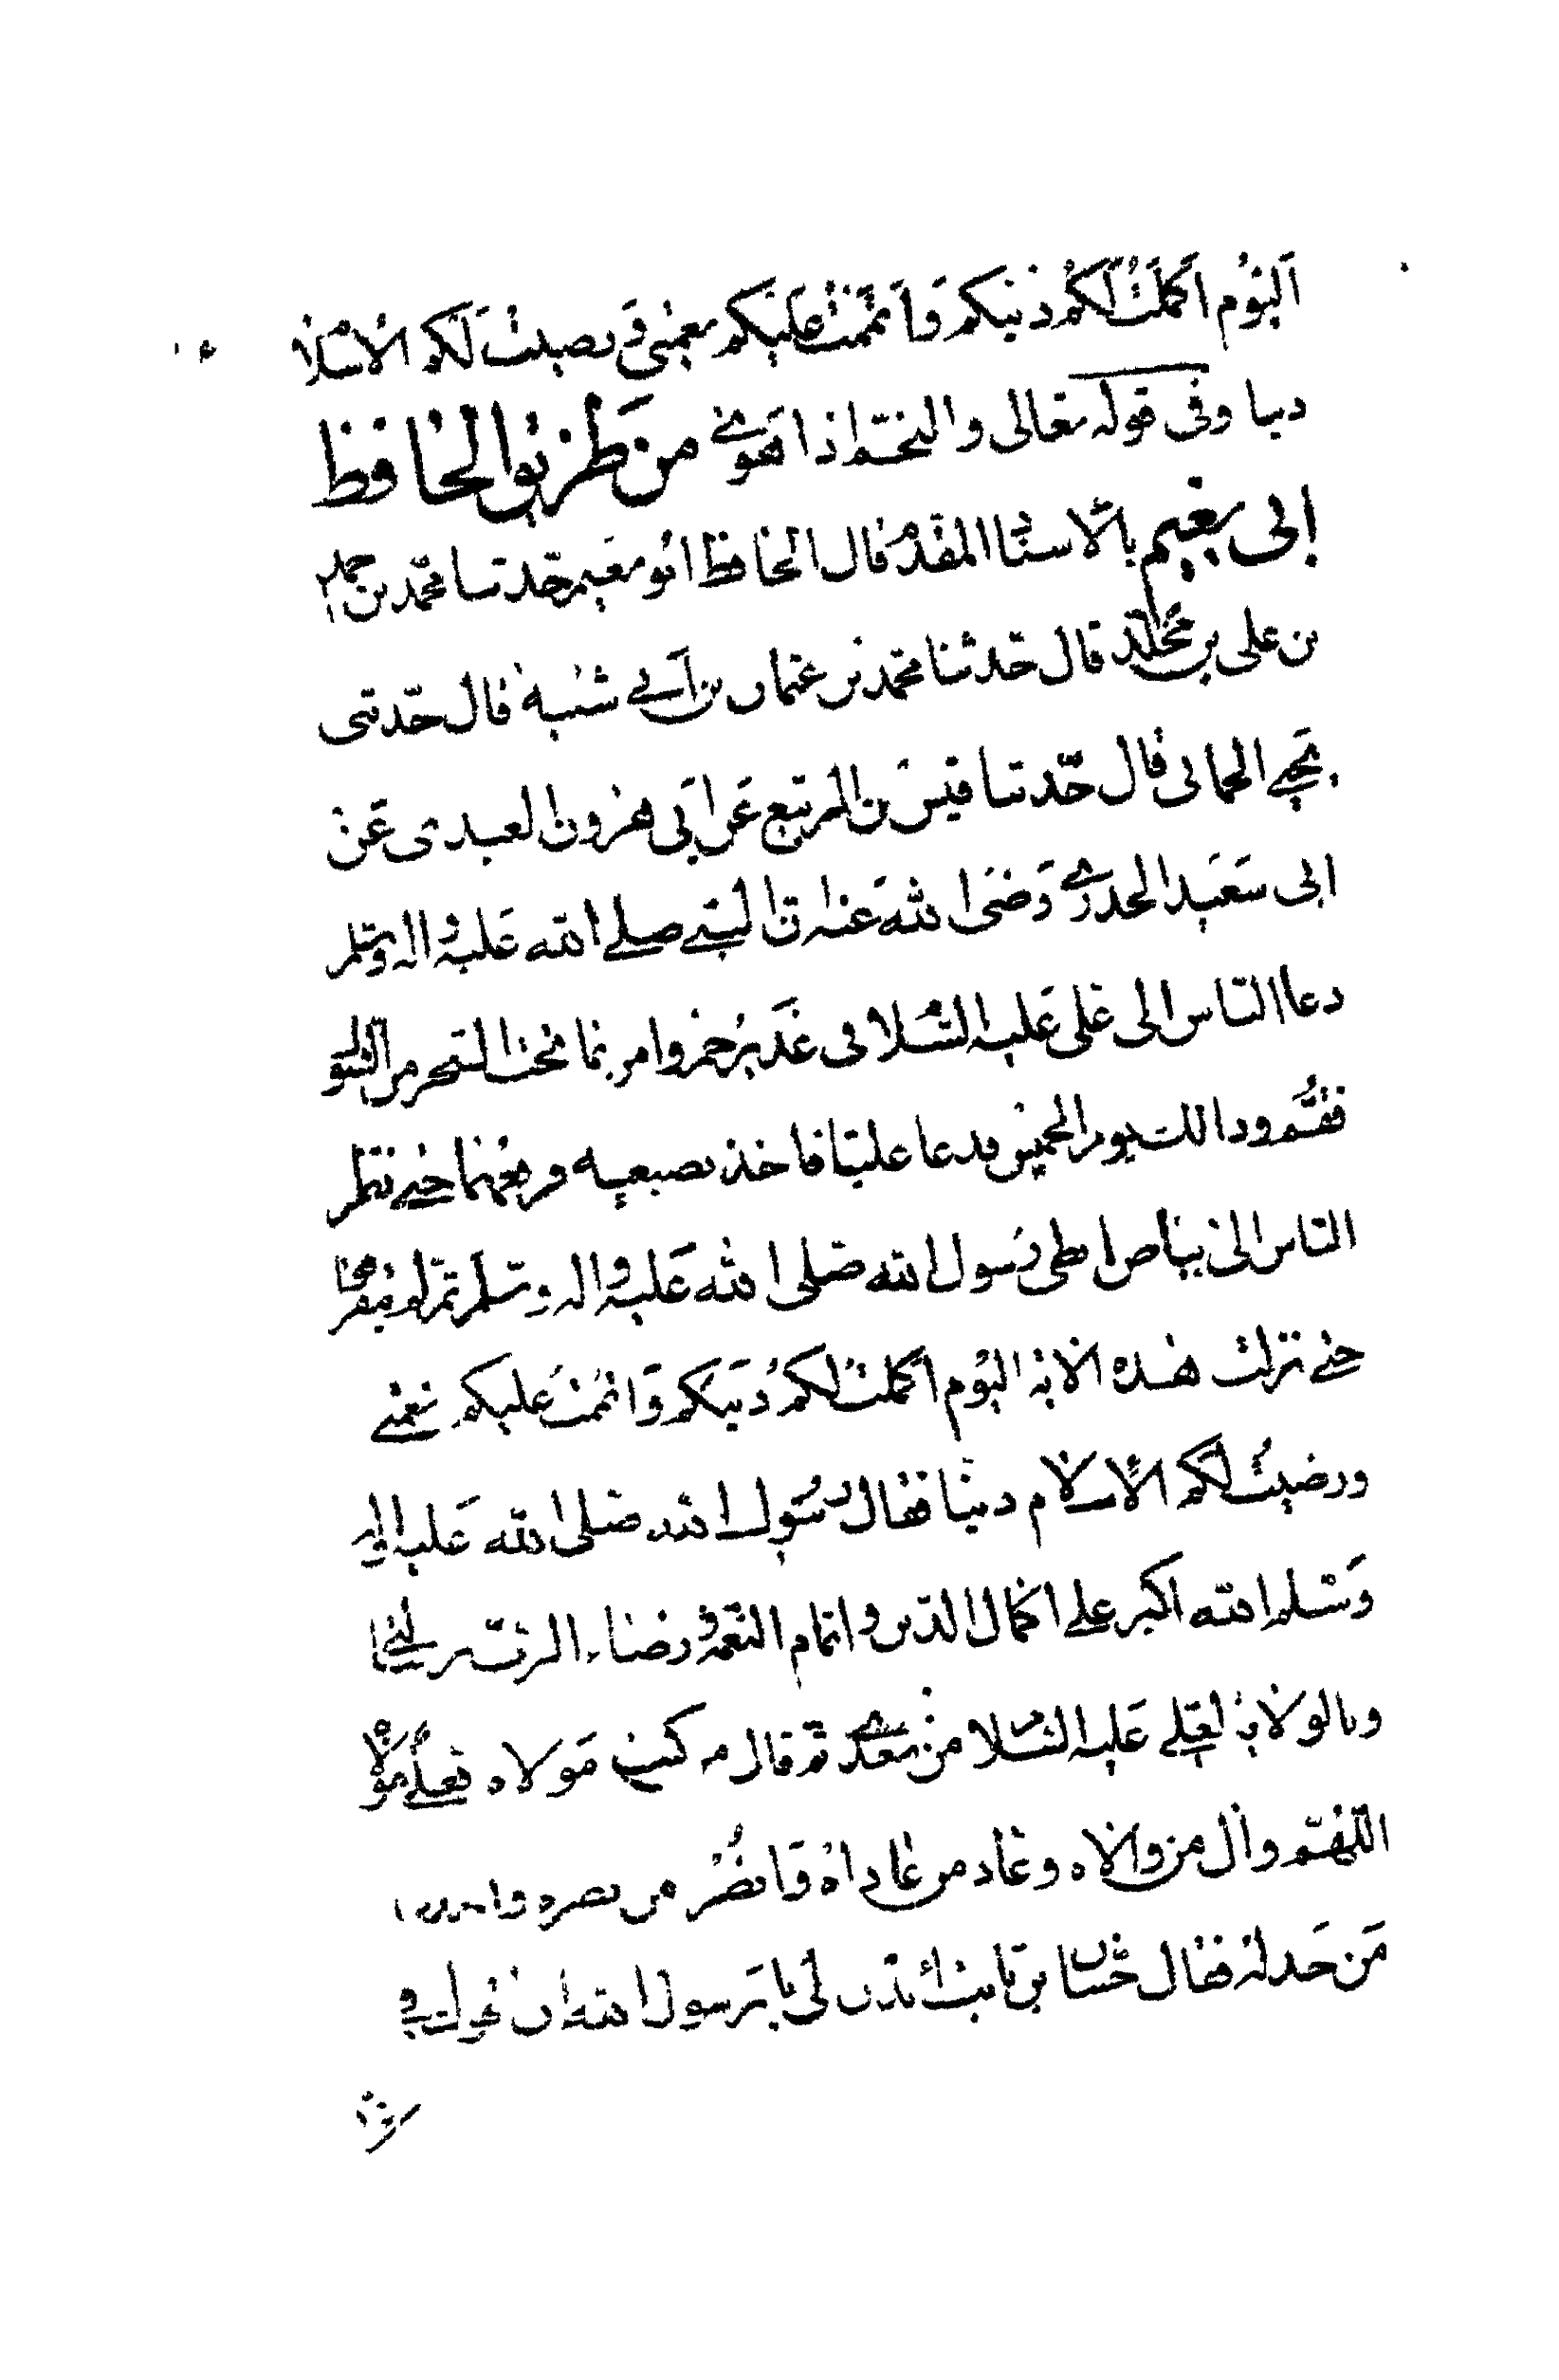 اَليَوْم اَكملتُ لَكُم دينكم وَاَتممتُ عَلَيكم نعمتى وَرضيت لَكم الاسلام
دينا وفى قوله تعالى والنجم اذا هوى من طريق الحافظ
ابى نعيم بالاسناد المقدم قال الحافظ ابو نعيم حدثنا محمد بن احمد
بن على بن مخلد قال حدثنا محمد بن عثمان بن ابى شيبه قال حدثنى
يحيى الحمانى قال حدثنا قيس بن الربيع عَن ابى هرون العبدى عَن
ابى سَعيد الخدرى رَضى الله عَنه ان النبى صلى الله عَليه واله وسلم
دعا الناس الى على عَليه السلام فى غَدير خم وامر بما تحت الشجر من الشوك
فقُمّ وذالك يوم الخميس فدعا عليّا فاخذ بضبعيه فرفعهما حتى نظر
الناس الى بياض ابطى رَسول الله صَلى الله عَليه واله وسلم ثم لم يفترقا
حتى نزلت هذه الايه اليَوم اكملت لكم دينكم وَاتممت عليكم نعمتى
ورضيت لكم الاسلام دينا فقال رسول الله صلى الله عَليه واله
وَسلم الله اكبر على اكمال الدين واتمام النعمه ورضاء الرب برسالتى
وبالولايه لعلى عَليه السلام من بعدى ثم قال من كنت مَولاه فعلى مولاه
اللهم وال من والاه وعاد من عاداه وَانصُر من نصره واخذل
مَن خَذله فقال حسان بن ثابت ائذن لى يا رَسول الله ان اقول فى